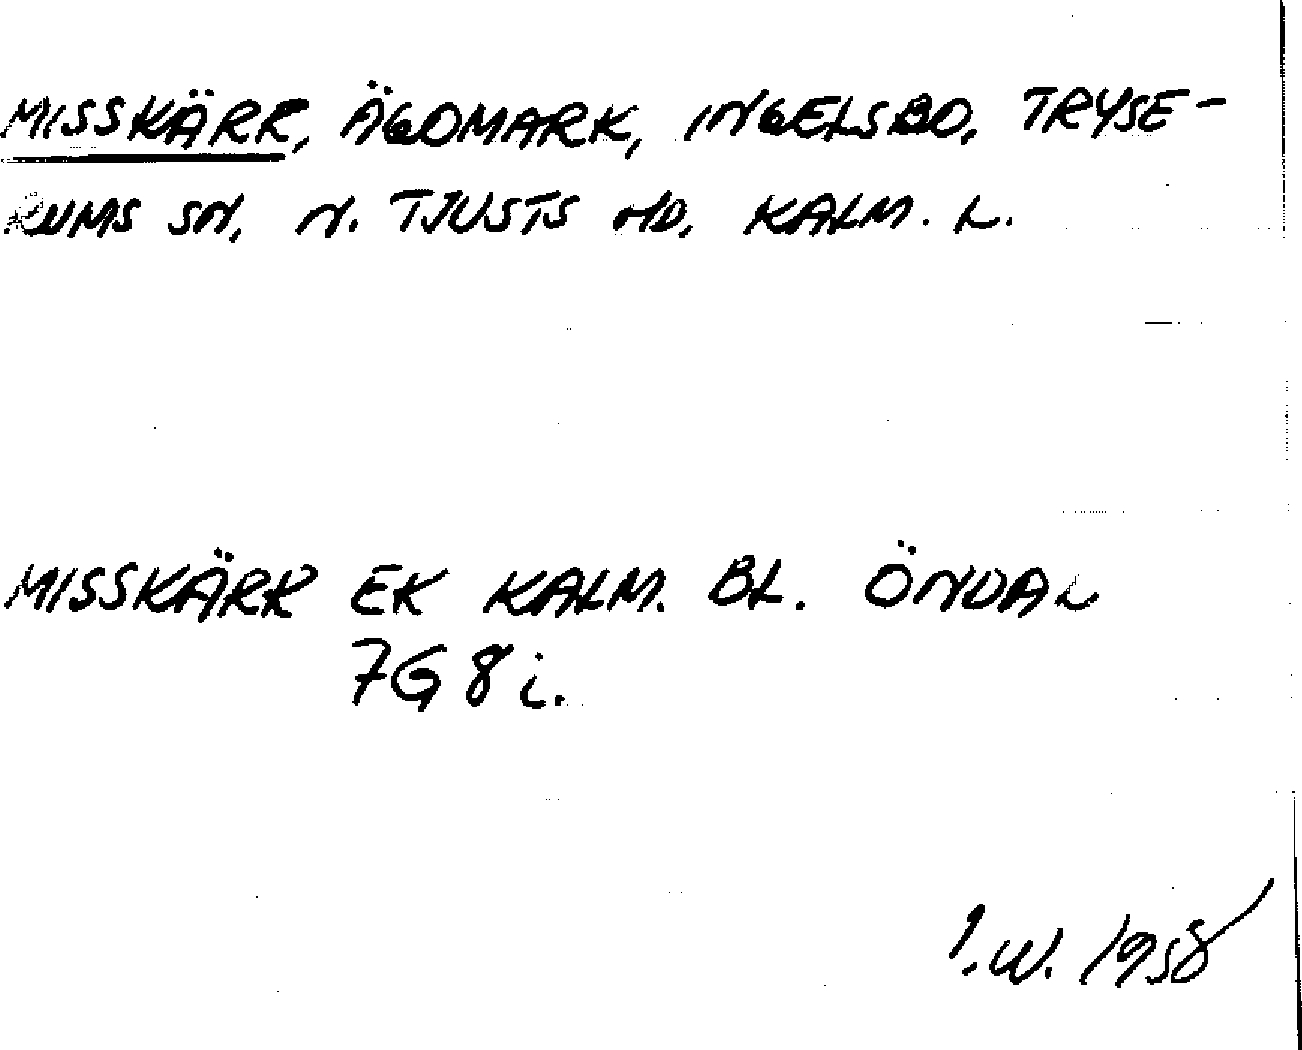 MISSKÄRR, ÄGOMARK, INGELSBO, TRYSE-
RUMS SN, N. TJUSTS HD, KALM. L.
MISSKÄRR EK KALM. BL. ÖNDAL
7G 8i.
I.W. 1958